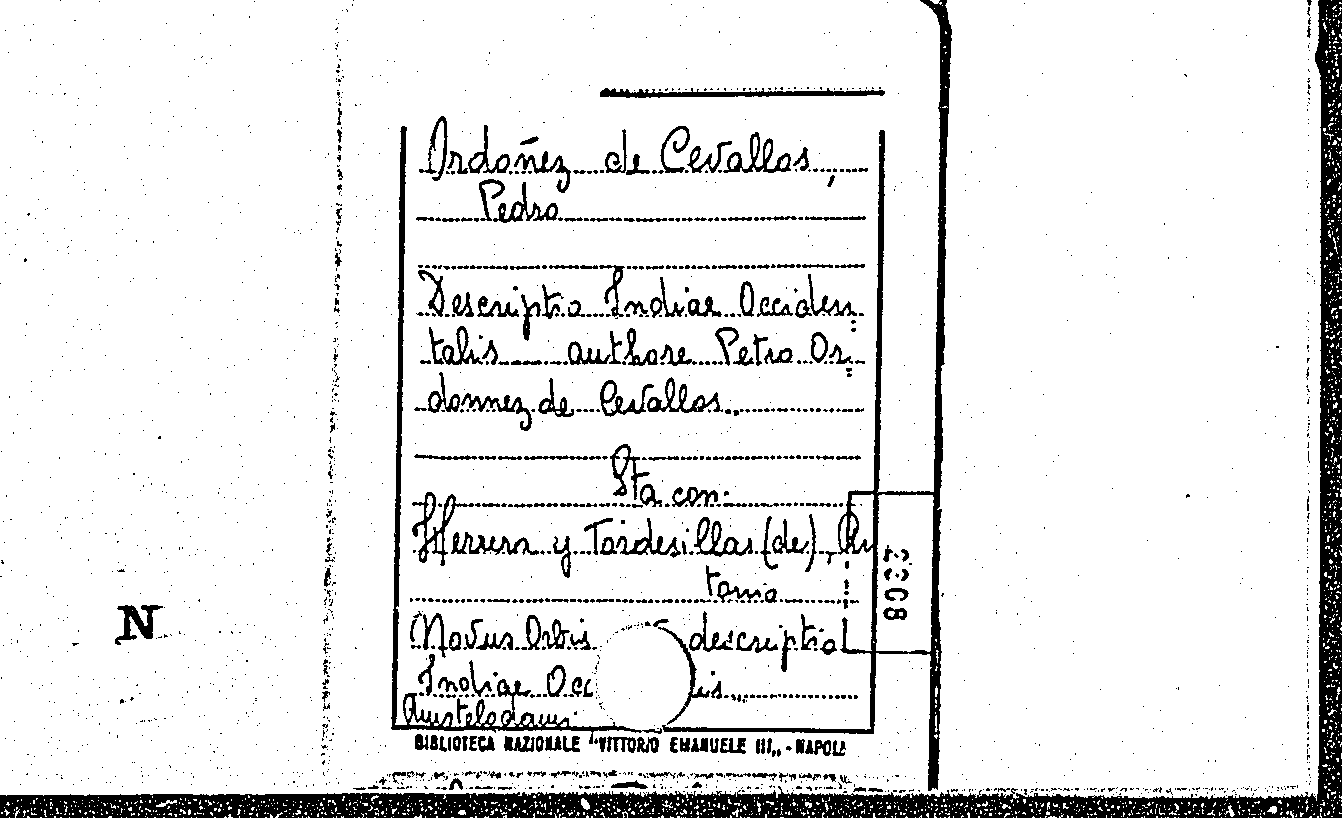 Ordoñez de Cevallos,
Pedro
Descriptio Indiae Occiden
talis authore Petro Or
donnez de Cevallos..
Sta con:
Herrera y Tordesillas (de), An
tonio
Novus Orbis descriptio
Indiae Occ is..
Amstelodami
BIBLIOTECA NAZIONALE "VITTORIO EMANUELE III„ - NAPOLI
2308
N